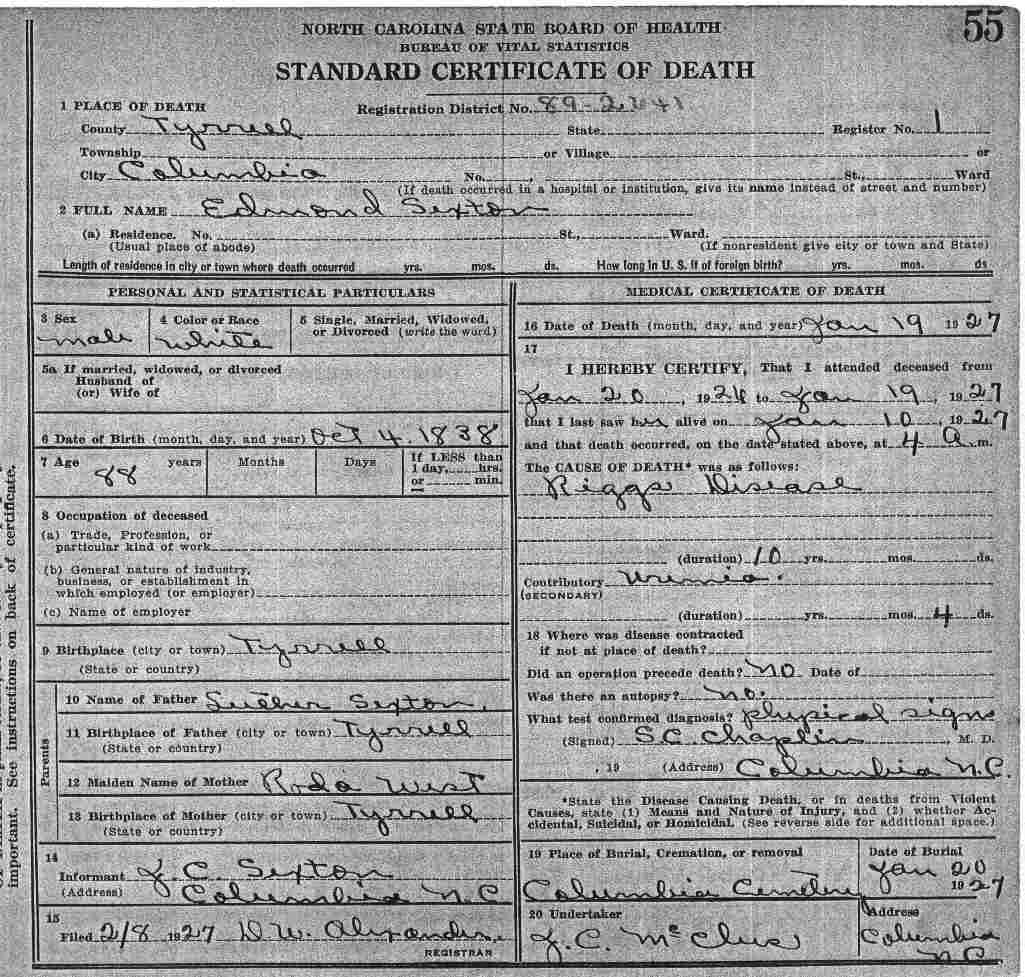 55
NORTH CAROLINA STATE BOARD OF HEALTH
BUREAU OF VITAL STATISTICS
STANDARD CERTIFICATE OF DEATH
1 PLACE OF DEATH Registration District No. 89-2641
County Tyrrell State Register No. 1
Township or Village or
City Columbia No. , St., Ward
(If death occurred in a hospital or institution, give its name instead of street and number)
2 FULL NAME Edmond Sexton
(a) Residence. No. St., Ward.
(Usual place of abode) (If nonresident give city or town and State)
Length of residence in city or town where death occurred yrs. mos. ds. How long in U. S. if of foreign birth? yrs. mos. ds
PERSONAL AND STATISTICAL PARTICULARS
3 Sex
male
4 Color or Race
white
5 Single, Married, Widowed,
or Divorced (write the word)
5a If married, widowed, or divorced
Husband of
(or) Wife of
6 Date of Birth (month, day, and year) Oct 4. 1838
7 Age
88 years Months Days
If LESS than
1 day, hrs.
or min.
8 Occupation of deceased
(a) Trade, Profession, or
particular kind of work
(b) General nature of industry,
business, or establishment in
which employed (or employer)
(c) Name of employer
9 Birthplace (city or town) Tyrrell
(State or country)
Parents
10 Name of Father Luther Sexton.
11 Birthplace of Father (city or town) Tyrrell
(State or country)
12 Maiden Name of Mother Roda West
13 Birthplace of Mother (city or town) Tyrrell
(State or country)
14
Informant J. C. Sexton
(Address) Columbia N C
15
Filed 2/8 1927 D W. Alexander,
REGISTRAR
MEDICAL CERTIFICATE OF DEATH
16 Date of Death (month, day, and year) Jan 19 1927
17
I HEREBY CERTIFY, That I attended deceased from
Jan 20, 1926 to Jan 19, 1927
that I last saw him alive on Jan 10, 1927
and that death occurred, on the date stated above, at 4 A. m.
The CAUSE OF DEATH* was as follows:
Riggs Disease
(duration) 10 yrs. mos. ds.
Contributory Uremia.
(SECONDARY)
(duration) yrs. mos. 4 ds.
18 Where was disease contracted
if not at place of death?
Did an operation precede death? No Date of
Was there an autopsy? no.
What test confirmed diagnosis? Physical signs
(Signed) S.C. Chaplin, M. D.
, 19 (Address) Columbia N.C.
*State the Disease Causing Death, or in deaths from Violent
Causes, state (1) Means and Nature of Injury, and (2) whether Ac-
cidental, Suicidal, or Homicidal. (See reverse side for additional space.)
19 Place of Burial, Cremation, or removal
Columbia Cemetery
Date of Burial
Jan 20
1927
20 Undertaker
J. C. McClus
Address
Columbia
N C
important. See instructions on back of certificate.